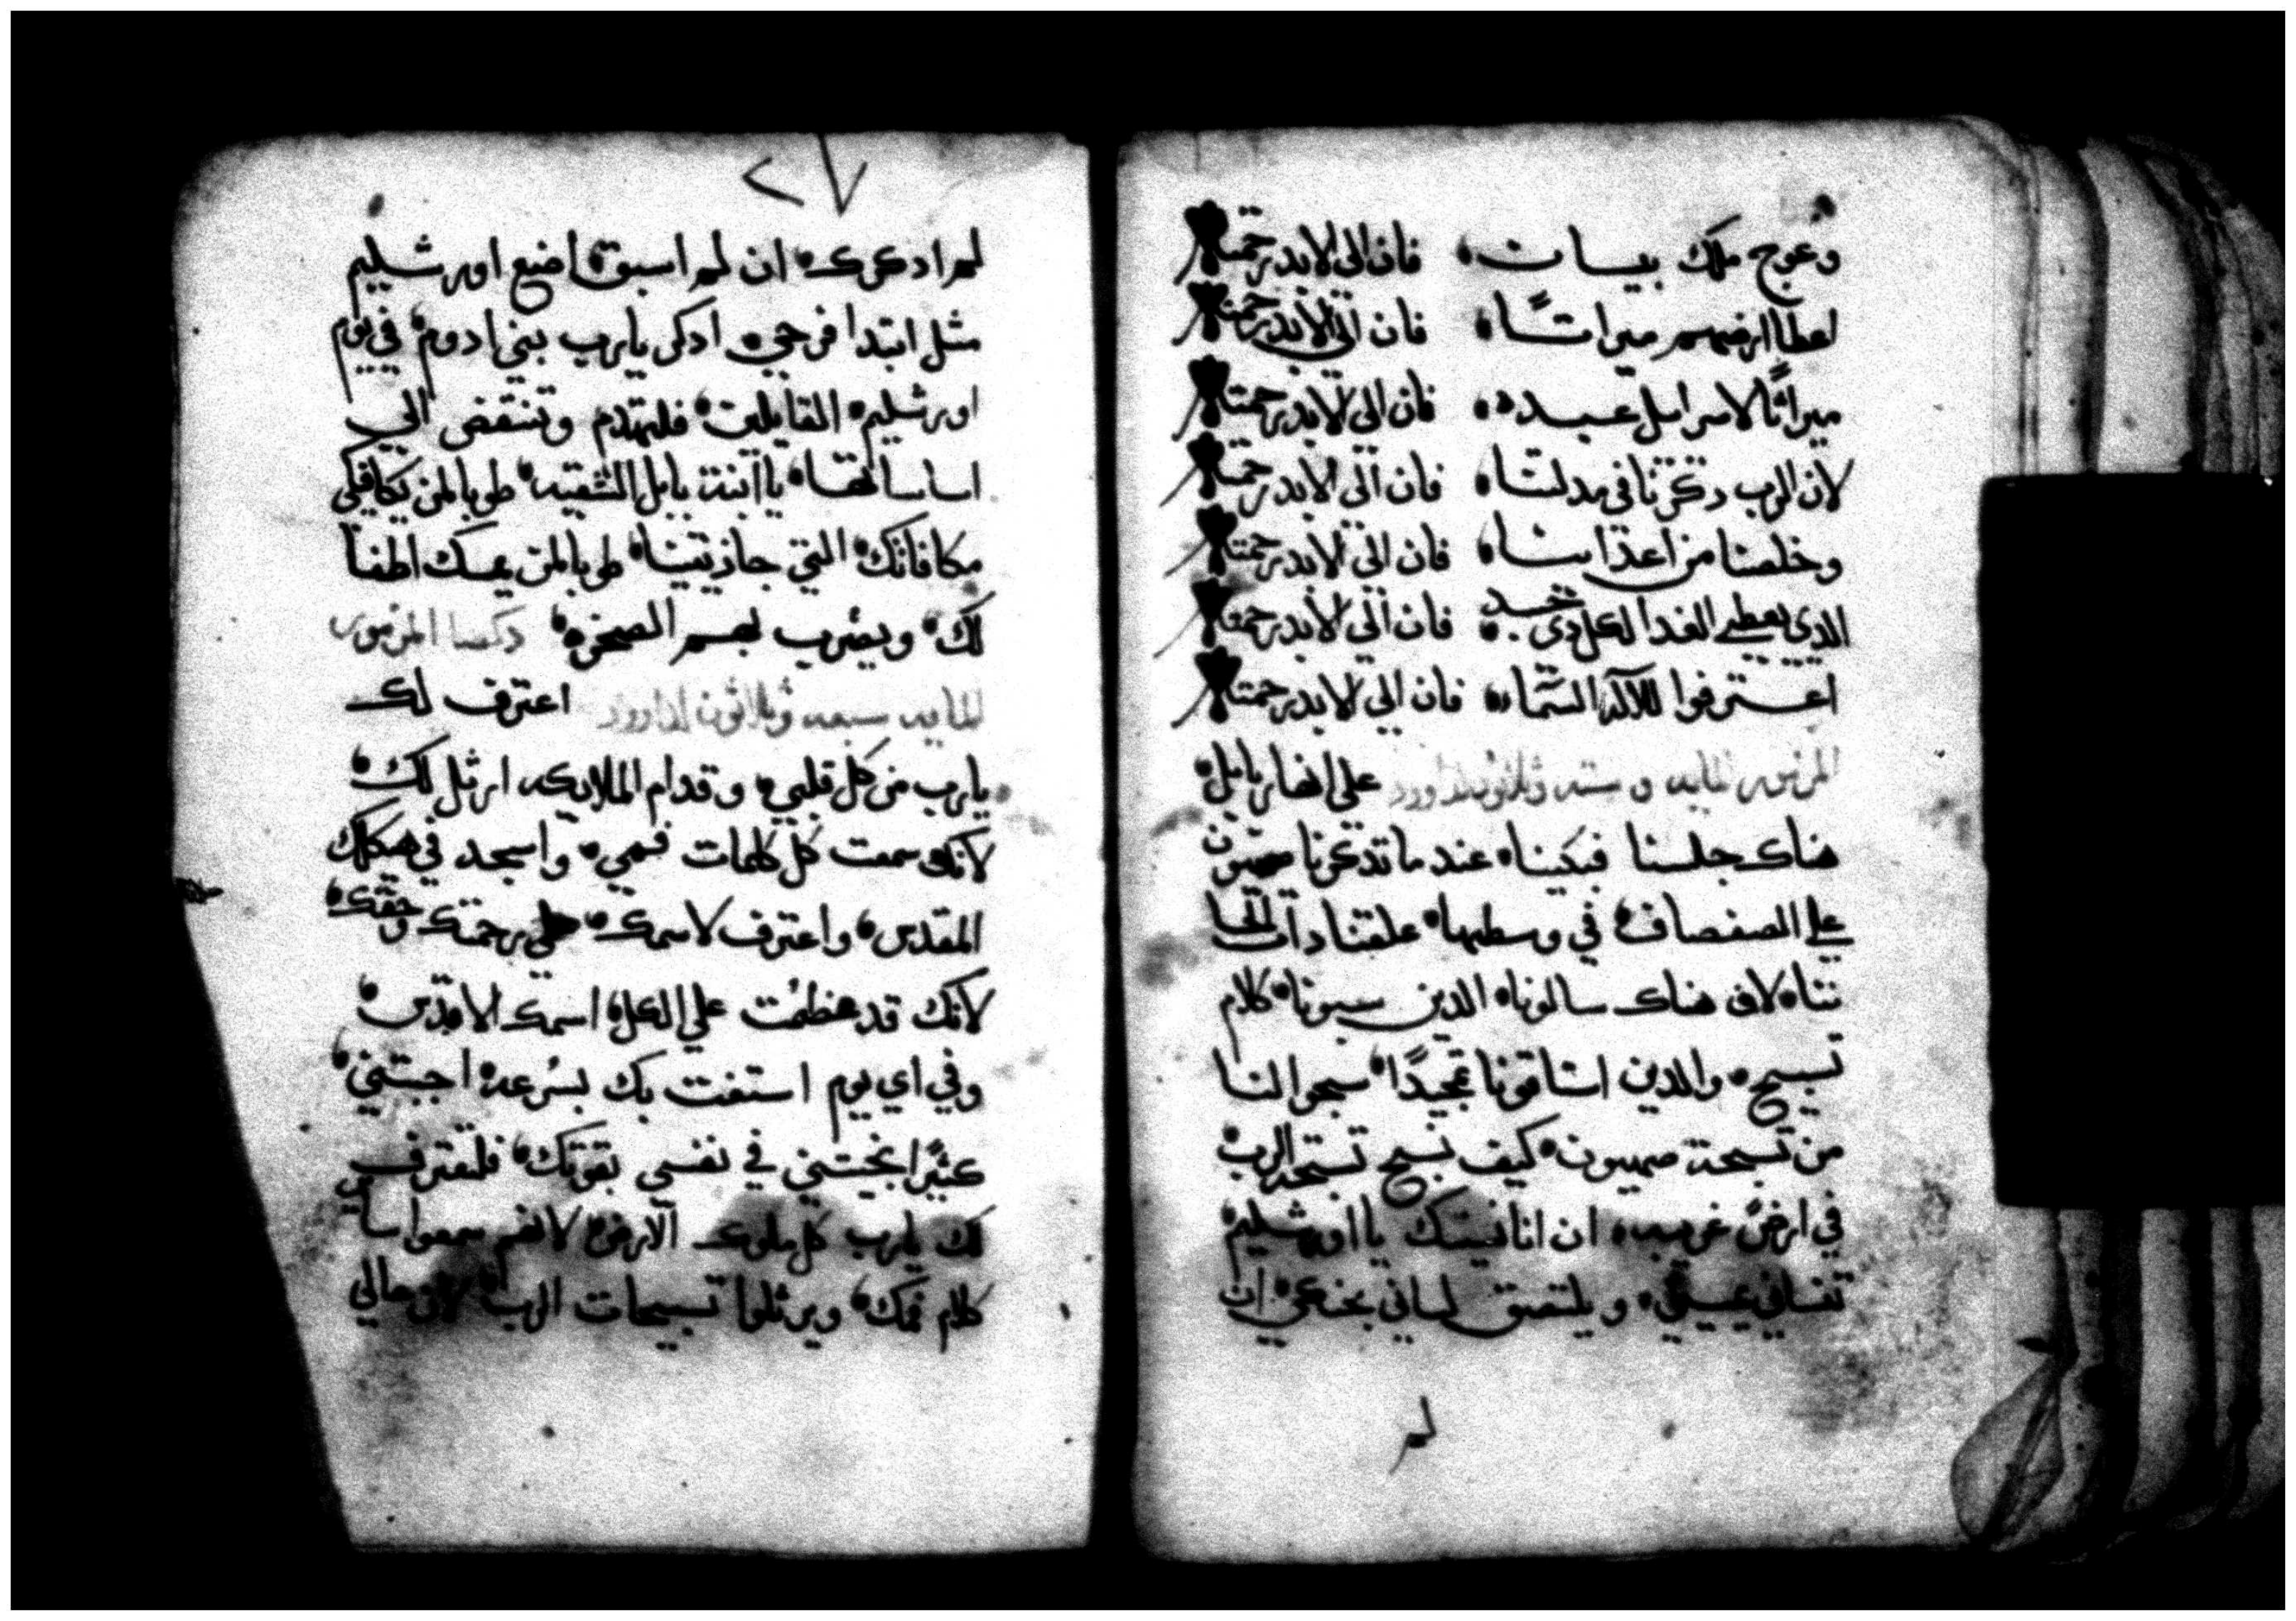 وعوج ملك بيسات، فان الى الابد رحمته
اعطا ارضهم ميراثًا، فان الي الابد رحمته
ميراثًا لاسراىىل عبده، فان الى الابد رحمته
لان الرب دكرنا في مدلتنا، فان الى الابد رحمته
وخلصنا من اعداينا، فان الى الابد رحمته
الدي يعطي الغدا لكل دي جسد، فان الي الابد رحمته
اعترفوا لالاه السماء، فان الي الابد رحمته
المزمور المايه و سته وثلاثون لداوود على انهار بابل
هناك جلسنا فبكينا، عند ما تدكرنا صهيون
علي الصفصاف، في وسطها، علقنا دات الحا
ننا، لان هناك سالونا، الدين سبونا، كلام
تسبيح، والدين استاقونا تمجيدًا، سبحوا لنا
من تسبحة صهيون، كيف نسبح تسبحة الرب
في ارض غريبه، ان انا نسيتك يا اورشليم
تنساني يميني، ويلتصق لساني بحنكي، ان
لم
٢٧
لم ادكرك، ان لم اسبق، اضع اورشليم
مثل ابتدا فرحي، ادكر يارب بني ادوم، في يوم
اورشليم، القايلين، فليهدم وتنتقض الي
اساساتها، يا ابنة بابل الشقيه، طوبا لمن يكافيكي
مكافاتك، التي جازيتينا، طوبا لمن يمسك اطفا
لك، ويضرب بهم الصخره، دكصا المزمور
المايه سبعه وثلاثون لداوود اعترف لك
يارب من كل قلبي، وقدام الملايكه ارتل لك،
لانك سمعت كل كلمات فمي، واسجد في هيكلك
المقدس، واعترف لاسمك، علي رحمتك وحقك،
لانك قد عظمت علي الكل، اسمك الاقدس،
وفي اي يوم استغت بك بسرعة، اجبتني،
كثيرًا نجيتني في نفسي بقوتك، فلتعترف
لك يارب كل ملوك الارض، لانهم سمعوا ساير
كلام فمك، ويرتلوا تسبيحات الرب، لان معالي